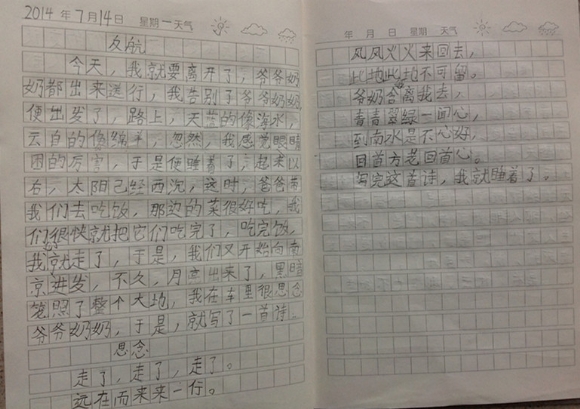 2014年7月14日 星期一天气
返航
今天，我就要离开了，爷爷奶
奶都出来送行，我告别了爷爷奶奶
便出发了，路上，天蓝的像海水，
云白的像绵羊，忽然，我感觉眼睛
困的厉害，于是便睡着了，起来以
右，太阳已经西沉，这时，爸爸带
我们去吃饭，那边的菜很好吃，我
们很快就把它们吃完了，吃完饭，
我就走了，于是，我们又开始向南
京进发，不久，月亮出来了，黑暗
笼照了整个大地，我在车里很思念
爷爷奶奶，于是，就写了一首诗。
思念
走了，走了，走了。
远在而来来一行。
年 月 日 星期 天气
风风火火来回去，
此地此地不可留。
爷奶含离我去，
青青翠绿一面心，
到南水是不心好，
回首方花回首心。
写完这首诗，我就睡着了。